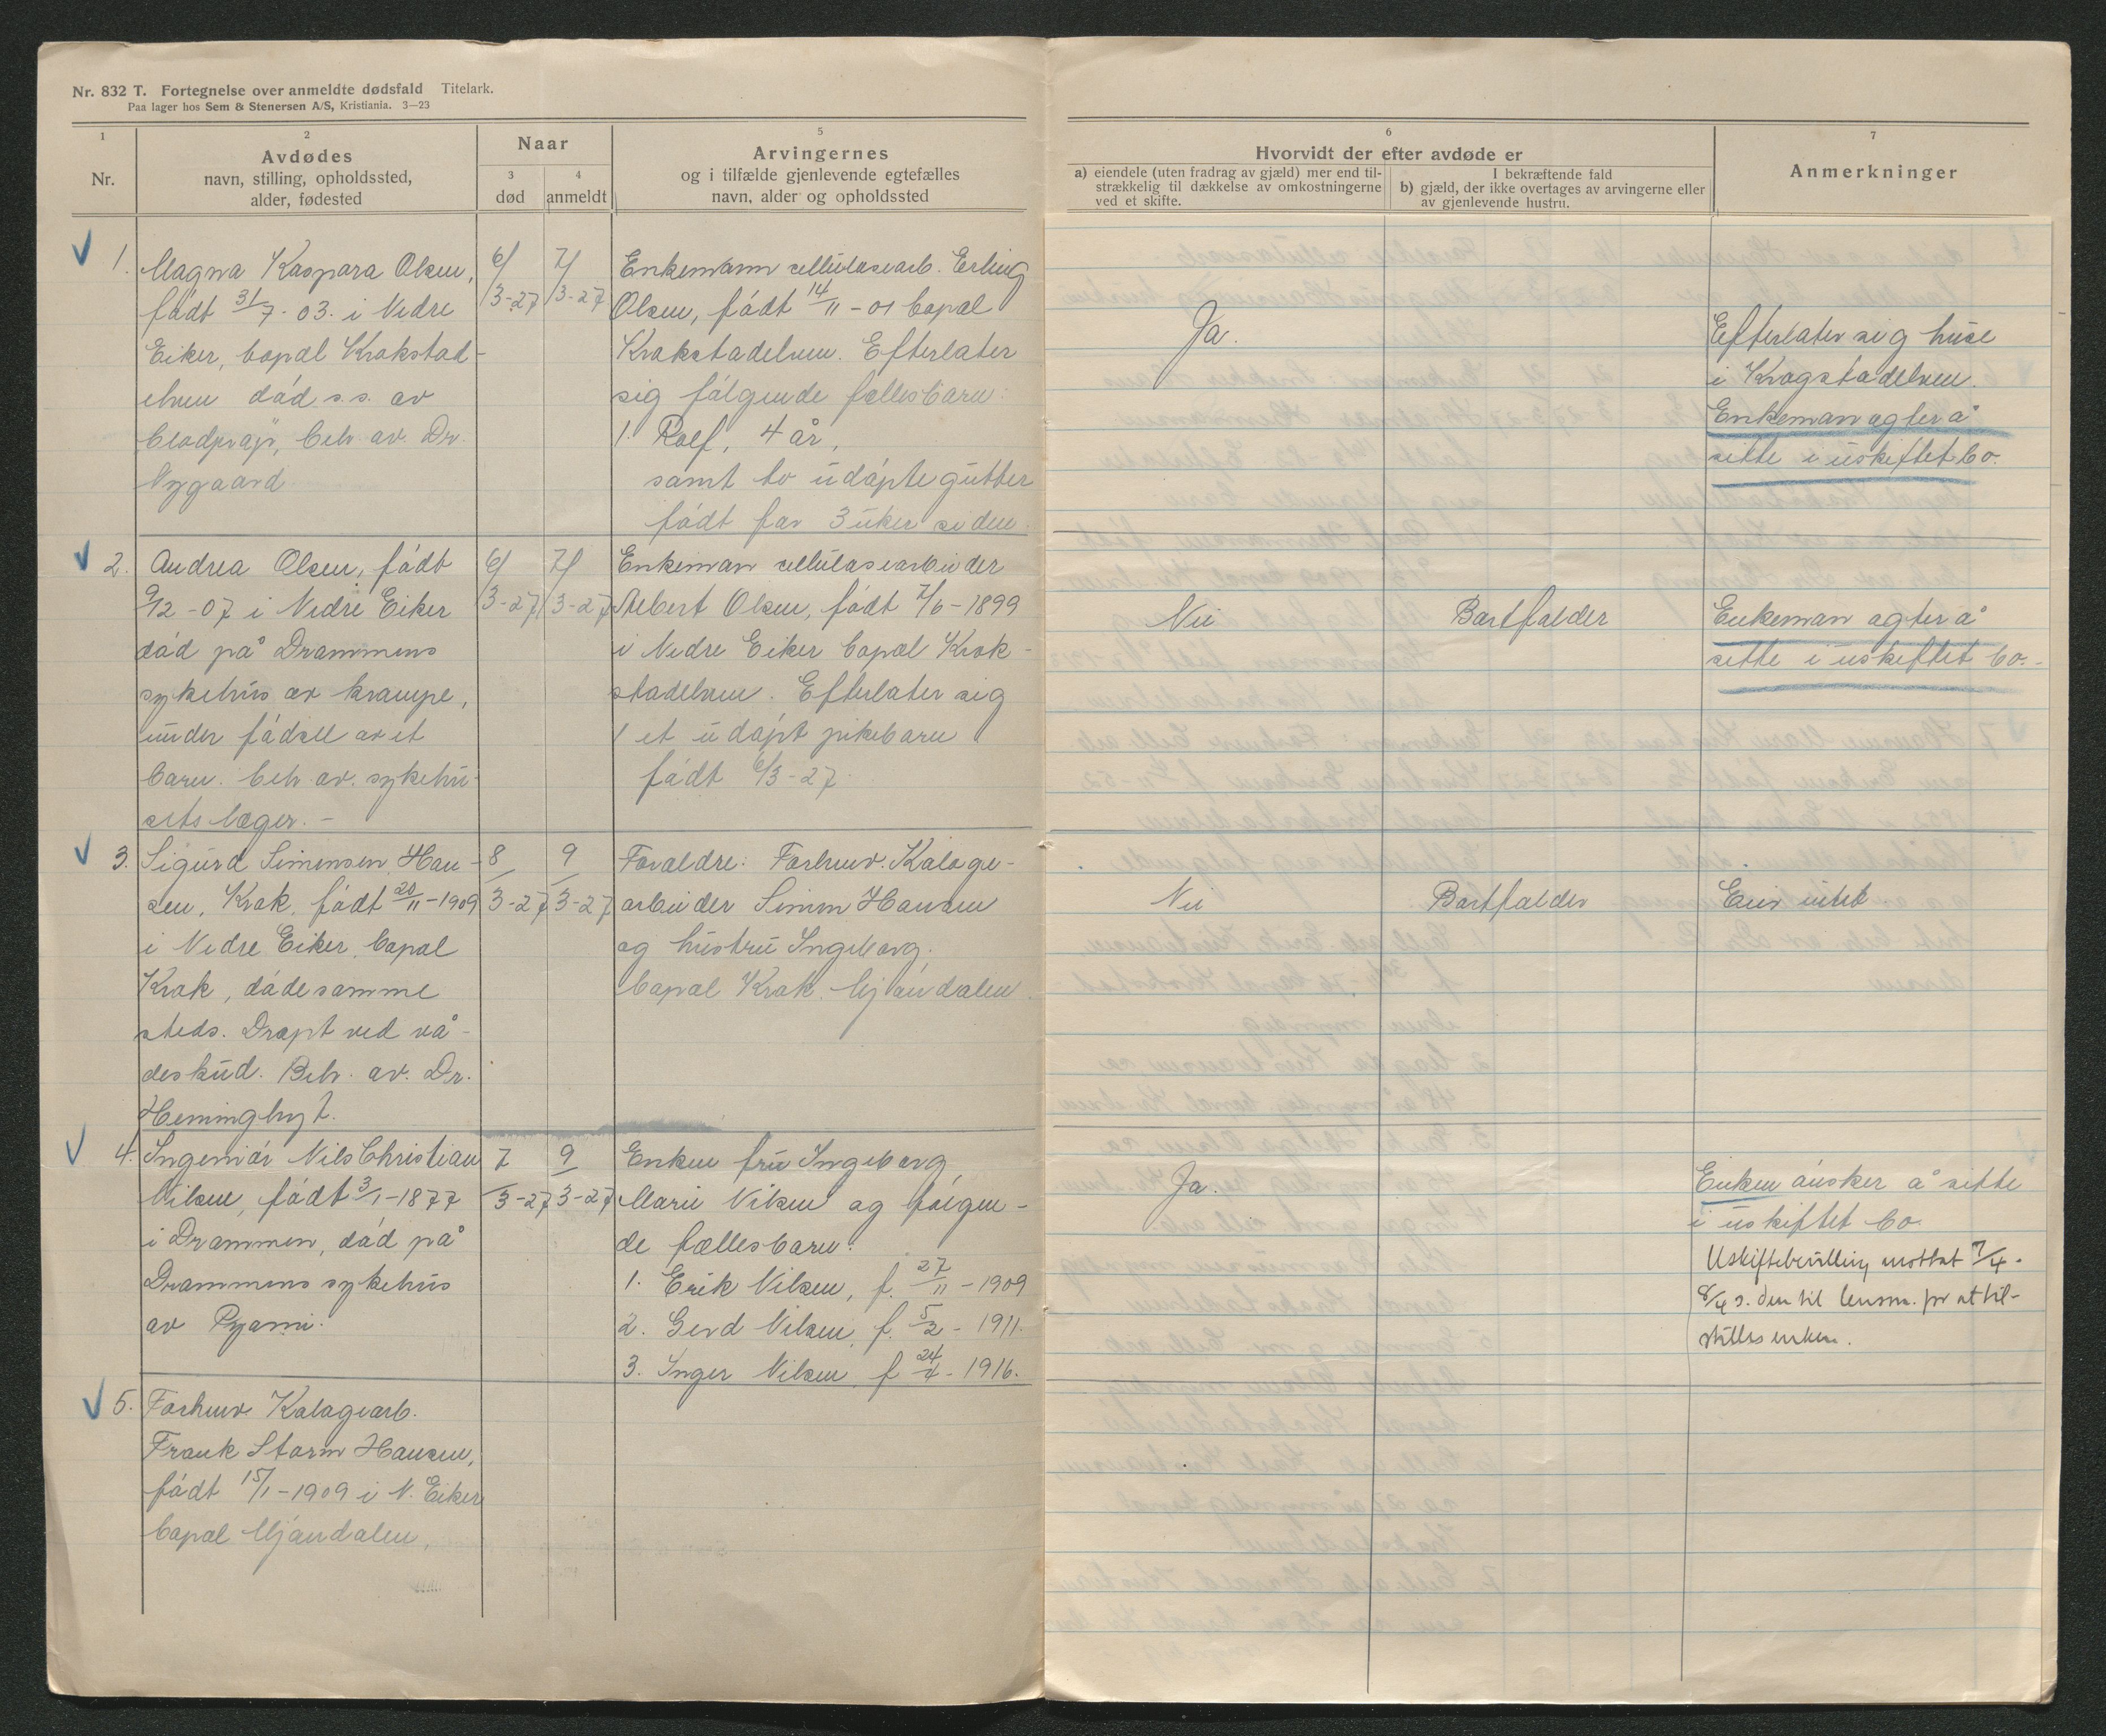 Nr. 832 T. Fortegnelse over anmeldte dødsfald Titelark.
Paa lager hos Sem & Stenersen A/S, Kristiania. 3—23
1
Nr.
2
Avdødes
navn, stilling, opholdssted,
alder, fødested
Naar
3
død
4
anmeldt
5
Arvingernes
og i tilfælde gjenlevende egtefælles
navn, alder og opholdssted
6
Hvorvidt der efter avdøde er
a) eiendele (uten fradrag av gjæld) mer end til-
strækkelig til dækkelse av omkostningerne
ved et skifte.
I bekræftende fald
b) gjæld, der ikke overtages av arvingerne eller
av gjenlevende hustru.
7
Anmerkninger
1.
Magna Kaspara Olsen,
født 31/7-03. i Nedre
Eiker, bopæl Krokstad-
elven død s.s. av
blodprop, beh. av Dr.
Nygaard
6/3-27
7/3-27
Enkemann cellulosearb. Erling
Olsen, født 14/11-01 bopæl
Krokstadelven. Efterlater
sig følgende fællesbarn:
1. Rolf, 4 år,
samt to udøpte gutter
født for 3 uker siden.
Ja.
Efterlater sig huse
i Krogstadelven.
Enkeman agter å
sitte i uskiftet bo.
2.
Andrea Olsen, født
9/12-07 i Nedre Eiker
død på Drammens
sykehus av krampe,
under fødsel av et
barn. beh. av. sykehu-
sets læger. -
6/3-27
7/3-27
Enkeman cellulosearbeider
Albert Olsen, født 7/6-1899
i Nedre Eiker bopæl Krok-
stadelven. Efterlater sig
1 et udøpt pikebarn
født 6/3-27.
Nei
Bortfalder
Enkeman agter å
sitte i uskiftet bo.-
3.
Sigurd Simensen Han-
sen, Krok, født 20/11-1909
i Nedre Eiker, bopæl
Krok, døde samme
steds. Dræpt ved vå-
deskud. Beh. av. Dr.
Heminghyt.
8/3-27
9/3-27
Foreldre: Forhenv. Kaloge-
arbeider Simen Hansen
og hustru Ingeborg.
bopæl Krok. Mjøndalen.
Nei
Bortfalder
Eier intet.
4.
Ingeniør Nils Christian
Nilsen, født 3/1-1877
i Drammen, død på
Drammens sykehus
av Pyæmi.
7/3-27
9/3-27
Enken fru Ingeborg
Marie Nilsen og følgen-
de fællesbarn:
1. Erik Nilsen, f. 27/11-1909
2. Gerd Nilsen, f. 5/2-1911.
3. Inger Nilsen f 24/4-1916.
Ja.
Enken ønsker å sitte
i uskiftet bo.
Uskiftebevilling mottat 7/4.
8/4 s. den til lensm. for at til-
stilles enken.
5.
Forhenv. Kalogearb.
Frank Storm Hansen,
født 15/1-1909 i N. Eiker
bopæl Mjøndalen,